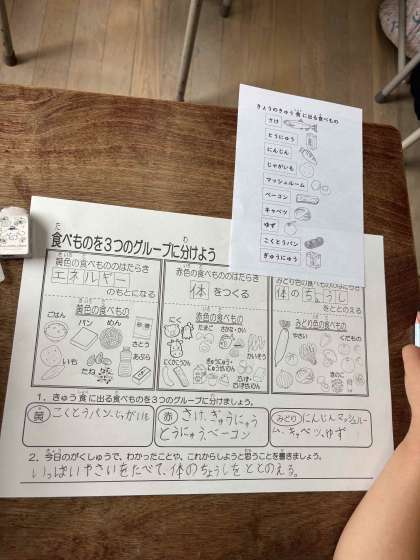 きょうのきゅう食に出る食べもの
さけ
とうにゅう
にんじん
じゃがいも
マッシュルーム
ベーコン
キャベツ
ゆず
こくとうパン
ぎゅうにゅう
食べものを3つのグループに分けよう
黄色の食べもののはたらき
エネルギー
のもとになる
黄色の食べもの
ごはん
パン
めん
さとう
いも
たね
あぶら
赤色の食べもののはたらき
体をつくる
赤色の食べもの
にく
たまご
さかな・かい
かいそう
みどり色の食べもののはたらき
体のちょうし
をととのえる
みどり色の食べもの
やさい
くだもの
きのこ
1. きゅう食に出る食べものを3つのグループに分けましょう。
黄 こくとうパン、じゃがいも
赤 さけ、ぎゅうにゅう
とうにゅう、ベーコン
みどり にんじん、マッシュルー
ム、キャベツ、ゆず
2. 今日のがくしゅうで、わかったことや、これからしようと思うことを書きましょう。
いっぱいやさいをたべて、体のちょうしをととのえる。